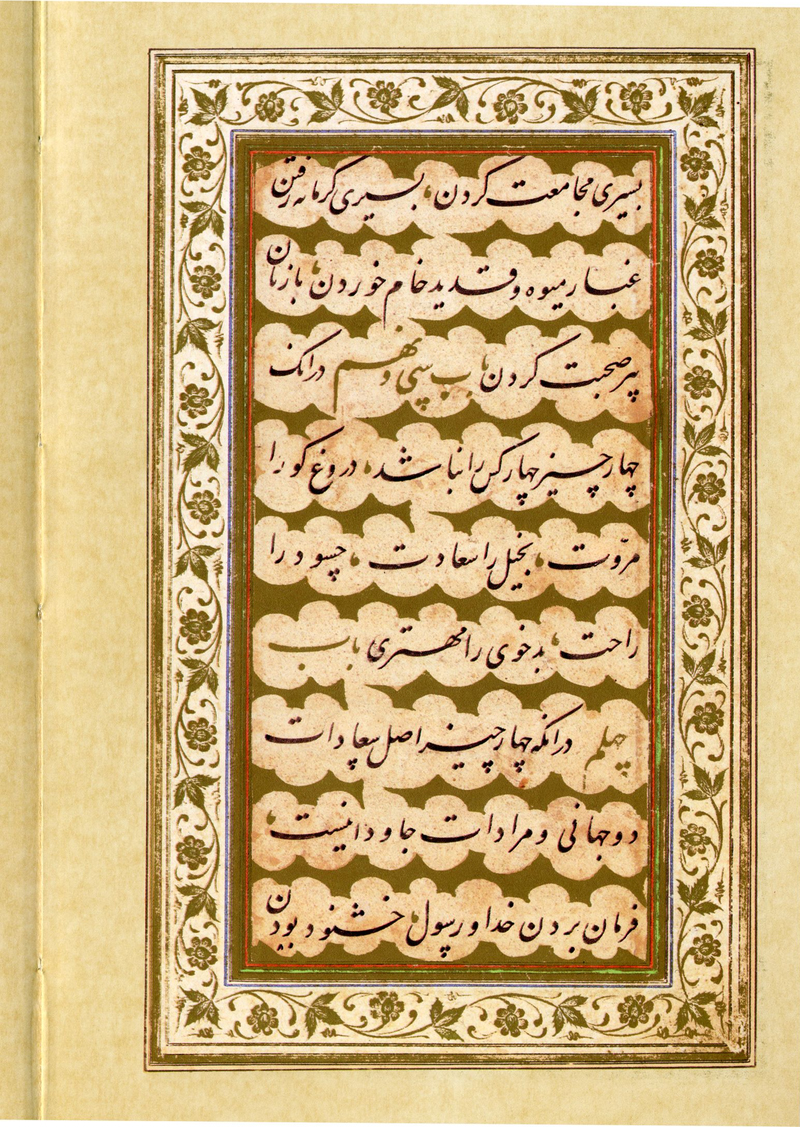 بسیری مجامعت کردن، بسیری گرمابه رفتن
غبار میوه و قدید خام خوردن، با زنان
پیر صحبت کردن، باب سی و نهم در آنک
چهار چیز چهار کس را نباشد، دروغ گو را
مروّت، بخیل را سعادت، حسود را
راحت، بدخوی را مهتری باب
چهلم در آنکه چهار چیز اصل سعادات
دو جهانی و مرادات جاودانیست،
فرمان بردن خدا و رسول، خشنود بودن